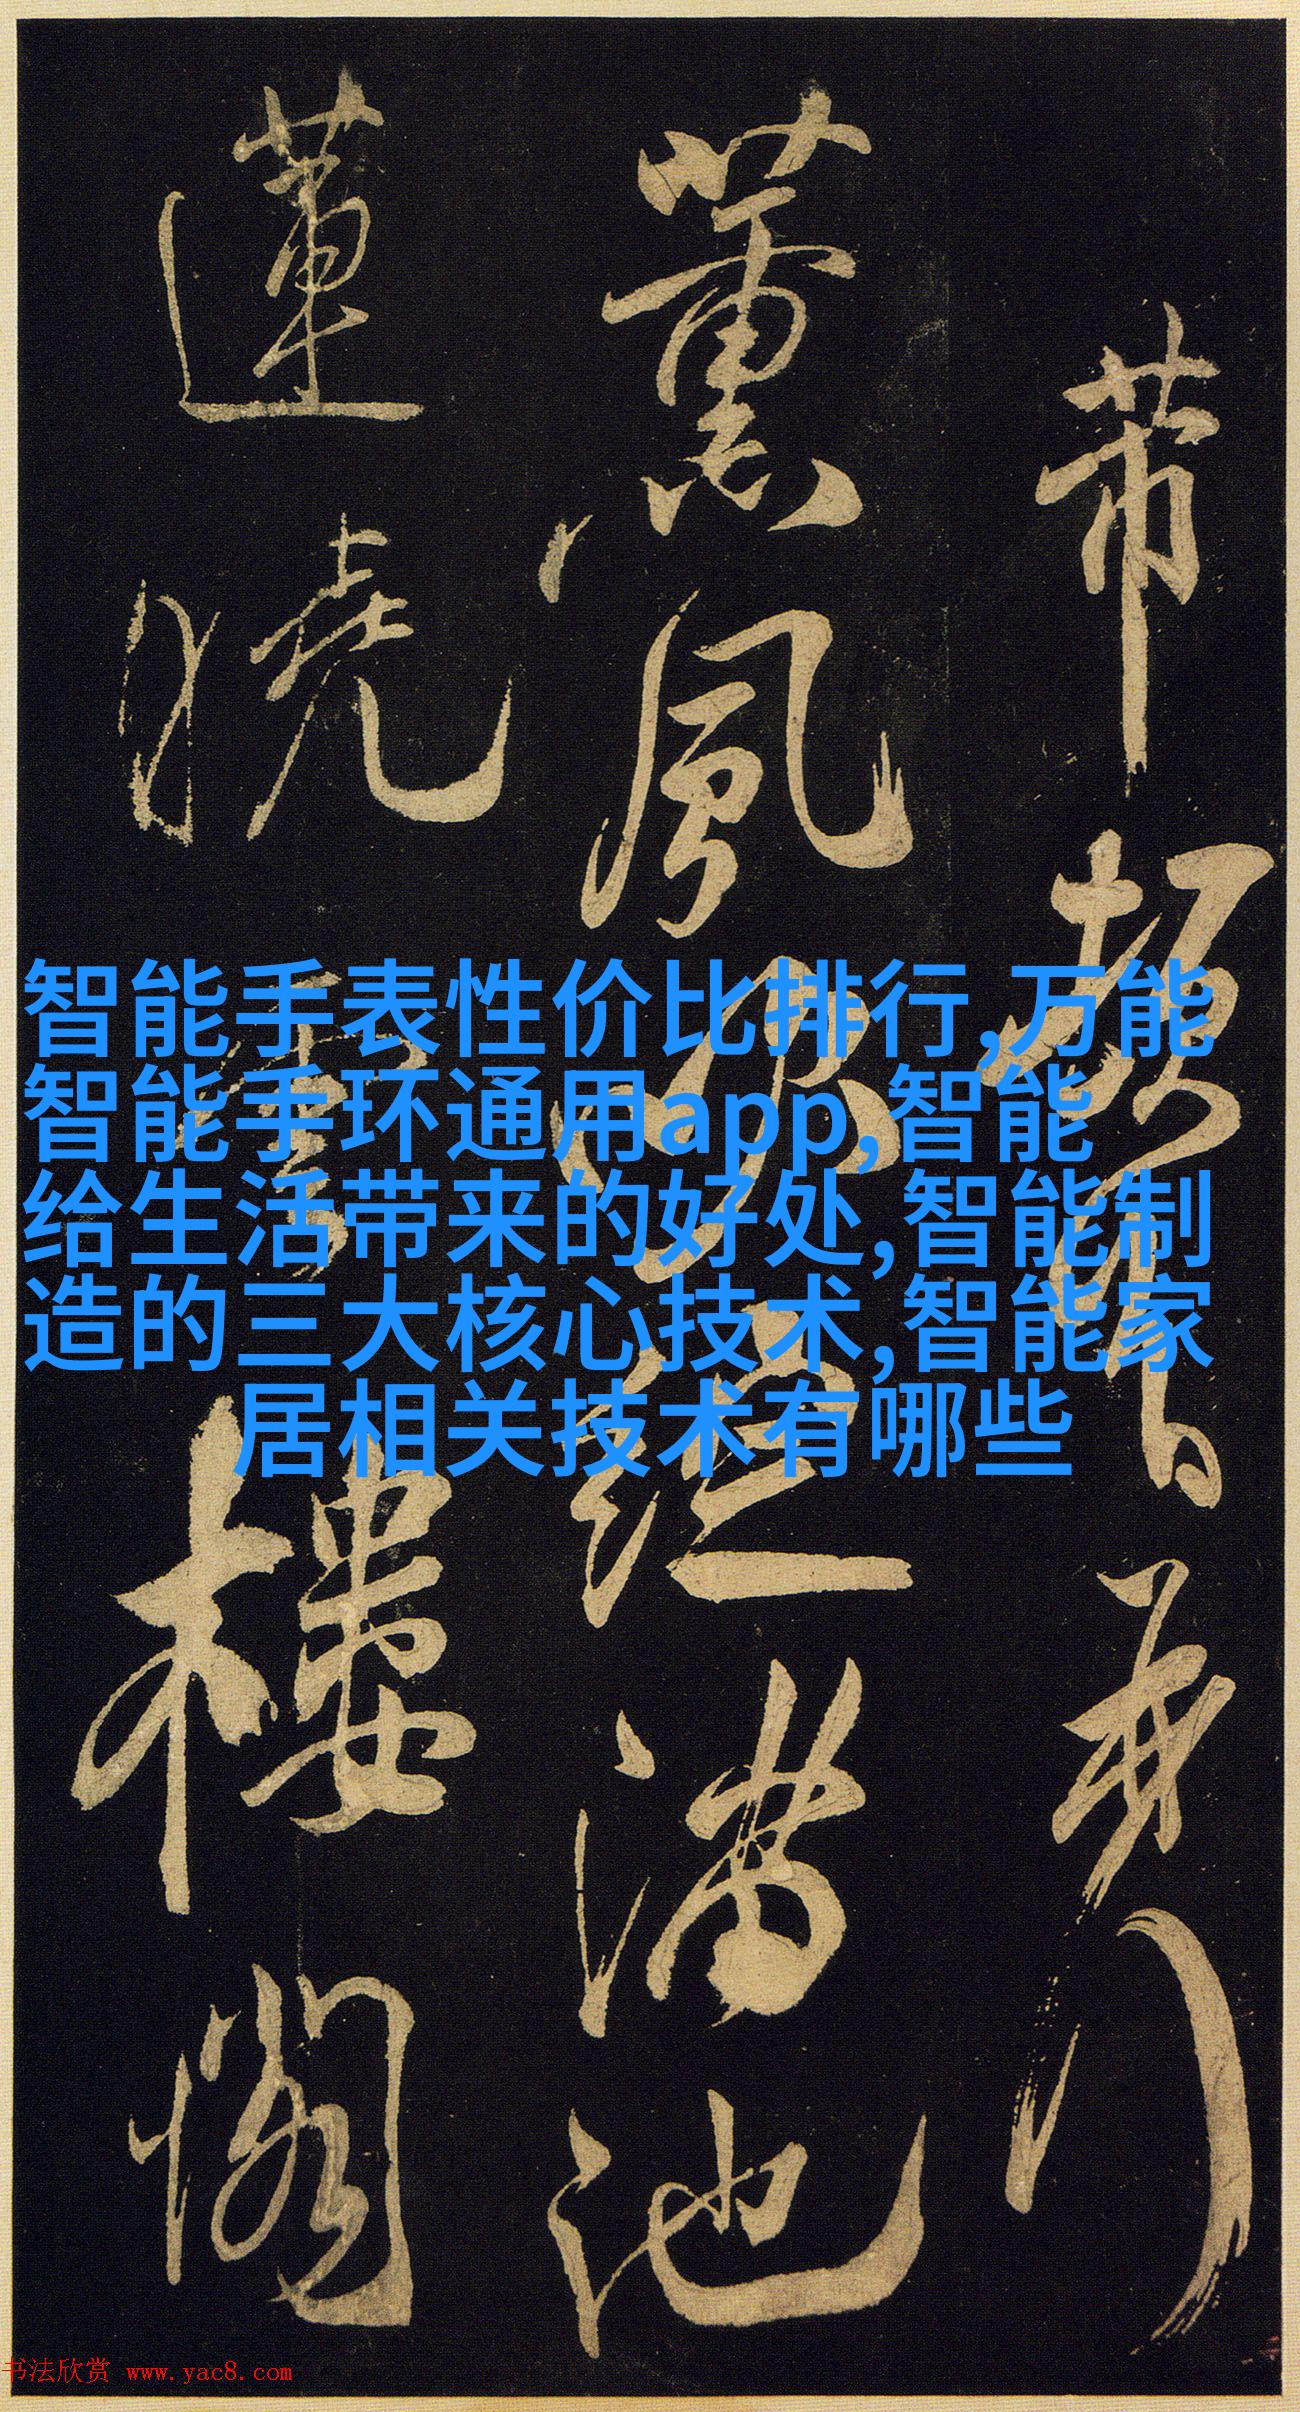 帶
薰風滿池
蓮曉樓閣
智能手表性价比排行,万能
智能手环通用app,智能
给生活带来的好处,智能制
造的三大核心技术,智能家
居相关技术有哪些
书法欣赏 www.yac8.com